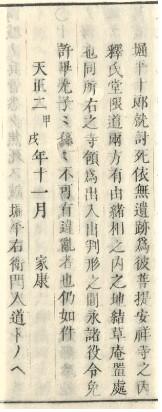 堀平十郎就討死依無遺跡為彼菩提安祥寺之内
釋氏堂限道兩方有由緒相之内之地結草庵置處
也同所右之寺領為出入出判形之間永諸役令免
許畢先子〻孫〻不可有違亂者也仍如件
天正二甲戌年十一月 家康
堀平右衛門入道トノヘ